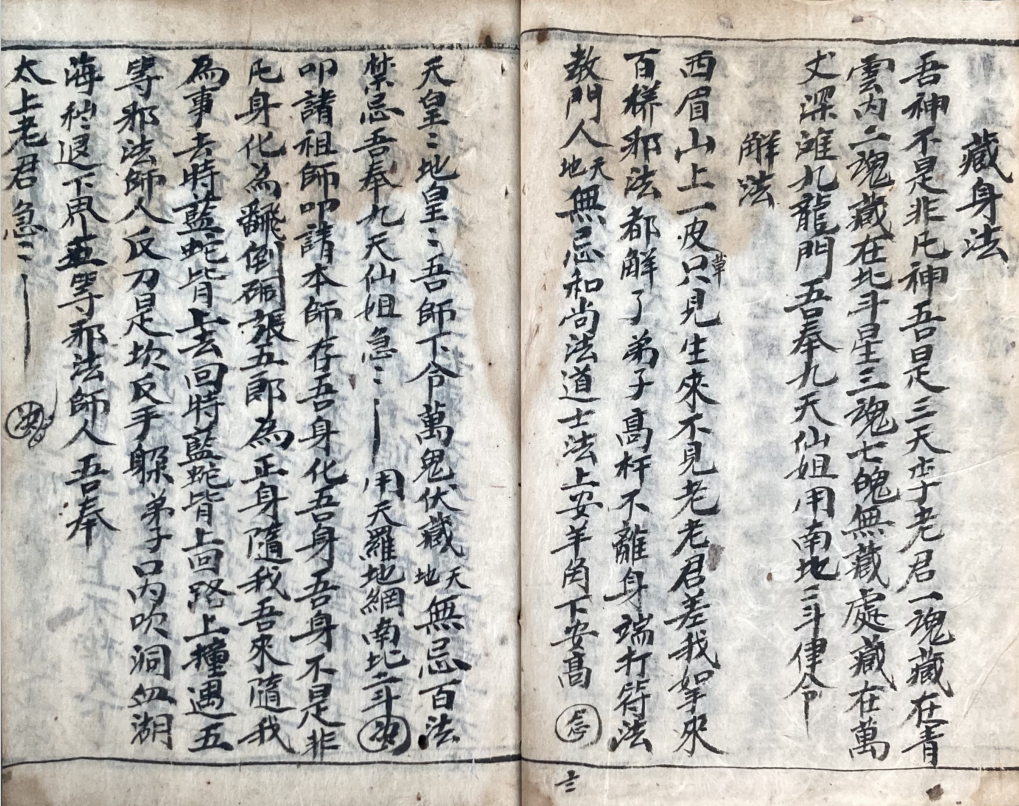 藏身法
吾神不是非凡神吾是三天李老君一魂藏在青
雲內二魂藏在北斗星三魂七魄無藏處藏在萬
丈深灘九龍門吾奉九天仙姐用南北二斗律令
解法
西眉山上一夜草只見生來不見老老君差我拏來
百樣邪法都解了弟子高杆不離身端打符法
教門人天地無忌和尚法道士法上安羊角下安高
天皇〻地皇〻吾師下令萬鬼伏藏天地無忌百法
禁忌吾奉九天仙姐急〻 用天羅地網南北二斗
叩請祖師叩請本師存吾身化吾身吾身不是非
凡身化為翻倒張五郎為正身隨我吾來隨我
為事去時藍蛇皆上去回時藍蛇皆上回路上撞遇五
等邪法師人反刀是坎反手躲弟子口內吹洞血湖
海水退下界五等邪法師人吾奉
太上老君急〻